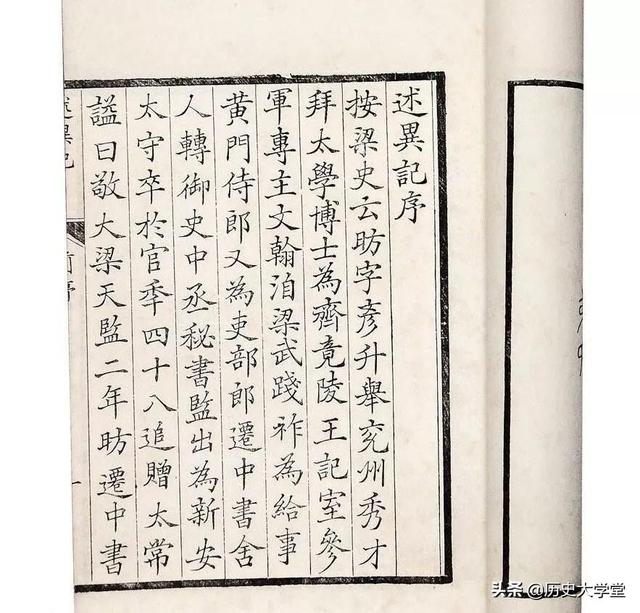 述異記序
按梁史云昉字彥升舉兖州秀才
拜太學博士為齊竟陵王記室參
軍專主文翰洎梁武踐祚為給事
黄門侍郎又為吏部郎遷中書舍
人轉御史中丞秘書監出為新安
太守卒於官年四十八追贈太常
謚曰敬大梁天監二年昉遷中書
述異記
前序
一
头条 @历史大学堂